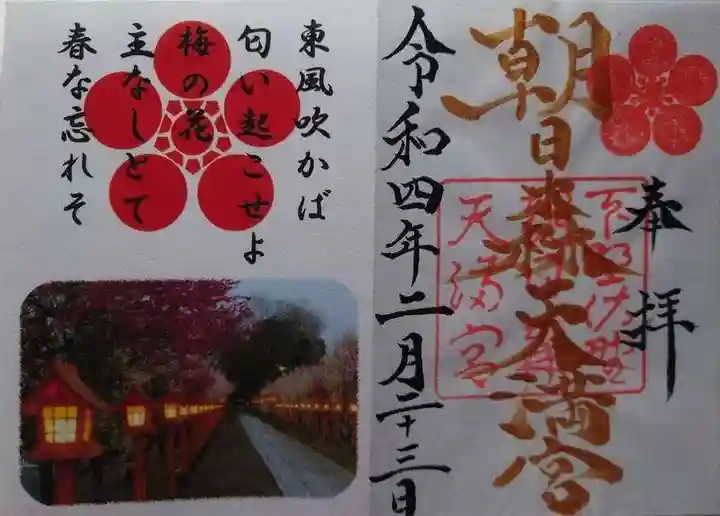 奉拝
朝日森天満宮
下野佐野
朝日森
天満宮
令和四年二月二十三日
東風吹かば
匂い起こせよ
梅の花
主なしとて
春な忘れそ